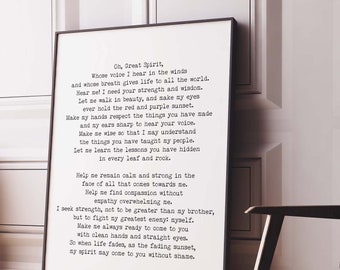 Oh, Great Spirit,
Whose voice I hear in the winds
and whose breath gives life to all the world.
Hear me! I need your strength and wisdom.
Let me walk in beauty, and make my eyes
ever hold the red and purple sunset.
Make my hands respect the things you have made
and my ears sharp to hear your voice.
Make me wise so that I may understand
the things you have taught my people.
Let me learn the lessons you have hidden
in every leaf and rock.
Help me remain calm and strong in the
face of all that comes towards me.
Help me find compassion without
empathy overwhelming me.
I seek strength, not to be greater than my brother,
but to fight my greatest enemy: myself.
Make me always ready to come to you
with clean hands and straight eyes.
So when life fades, as the fading sunset,
my spirit may come to you without shame.